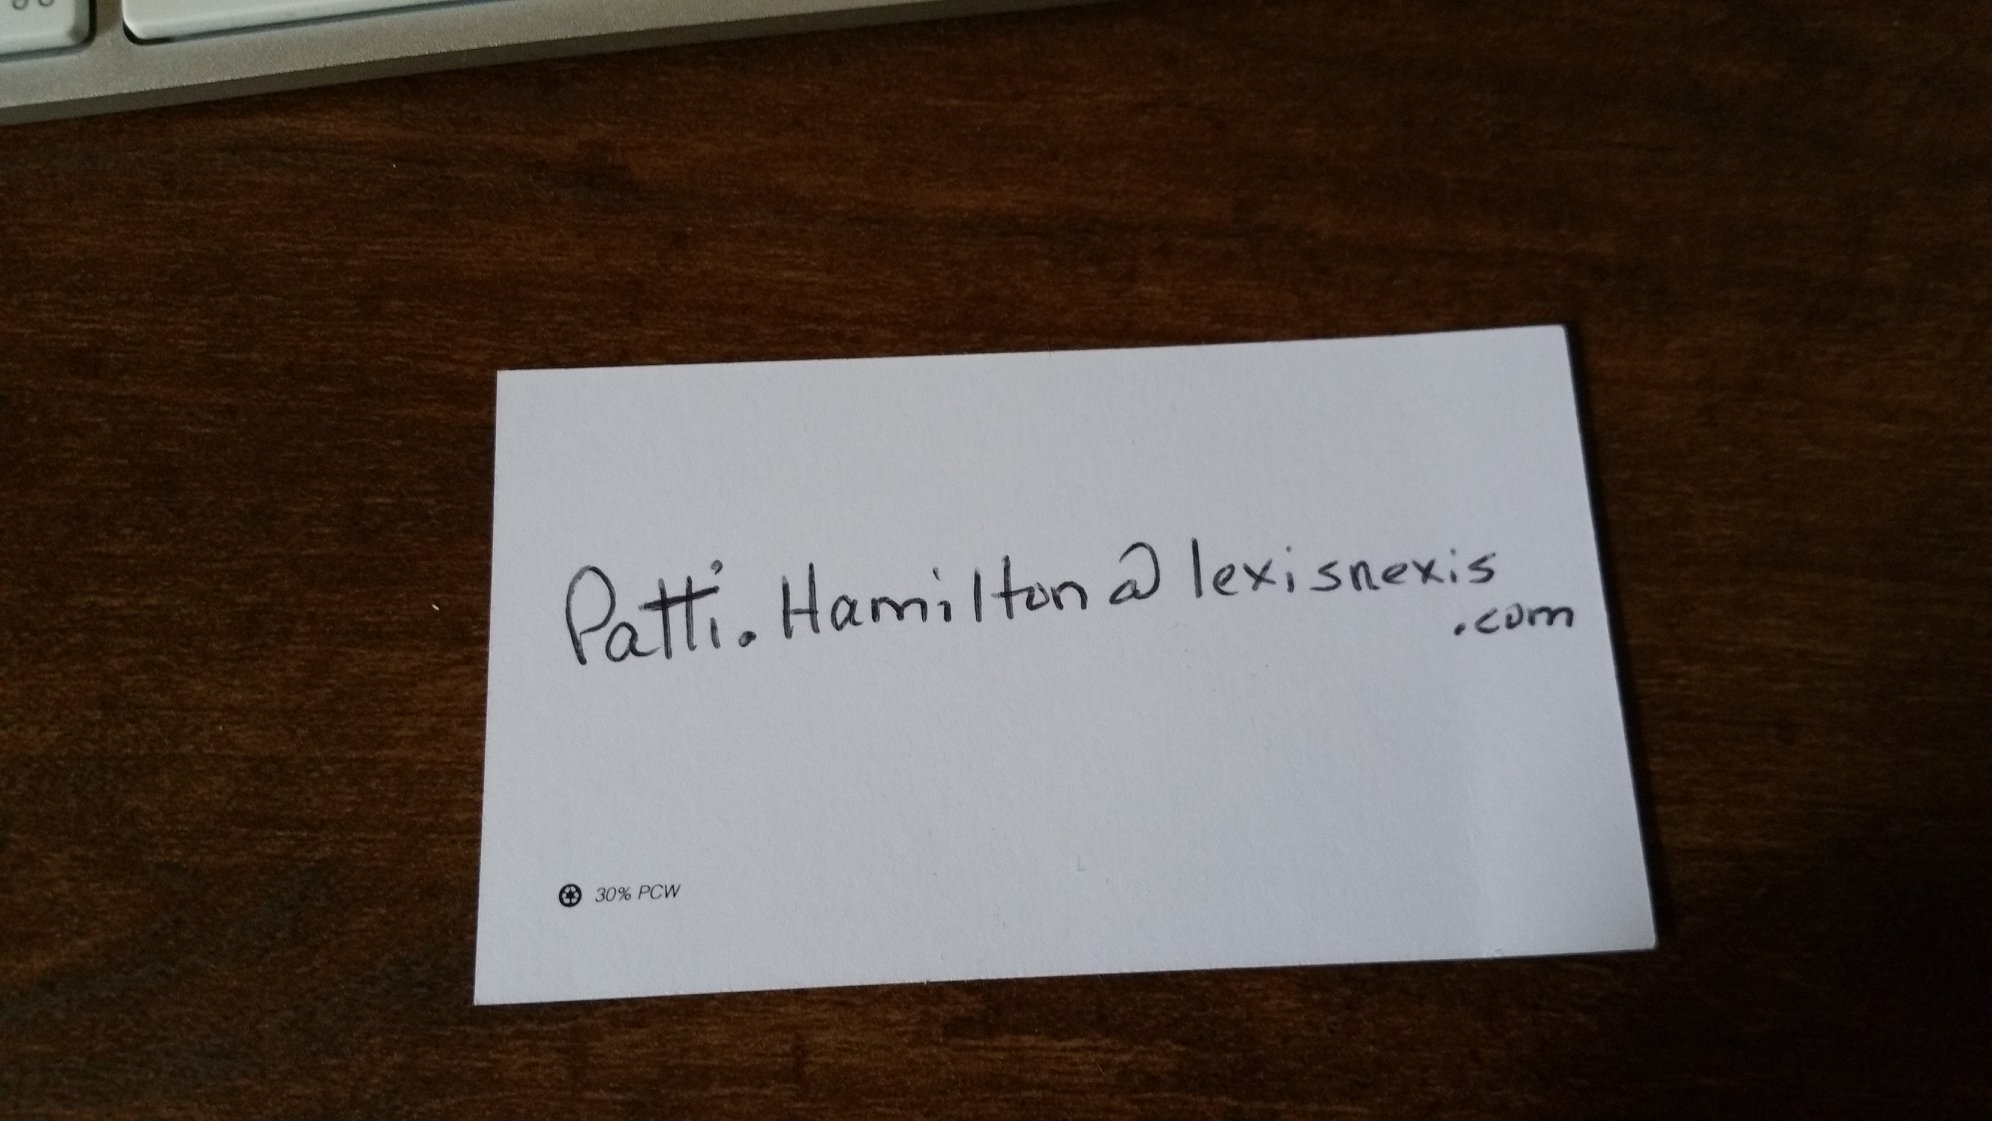 Patti.Hamilton@lexisnexis
.com
30% PCW